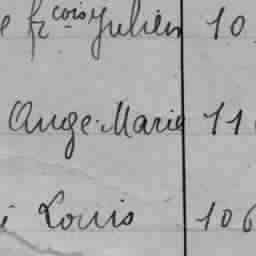 e fr cois Julien 10
Ange-Marie 11
i Louis 106